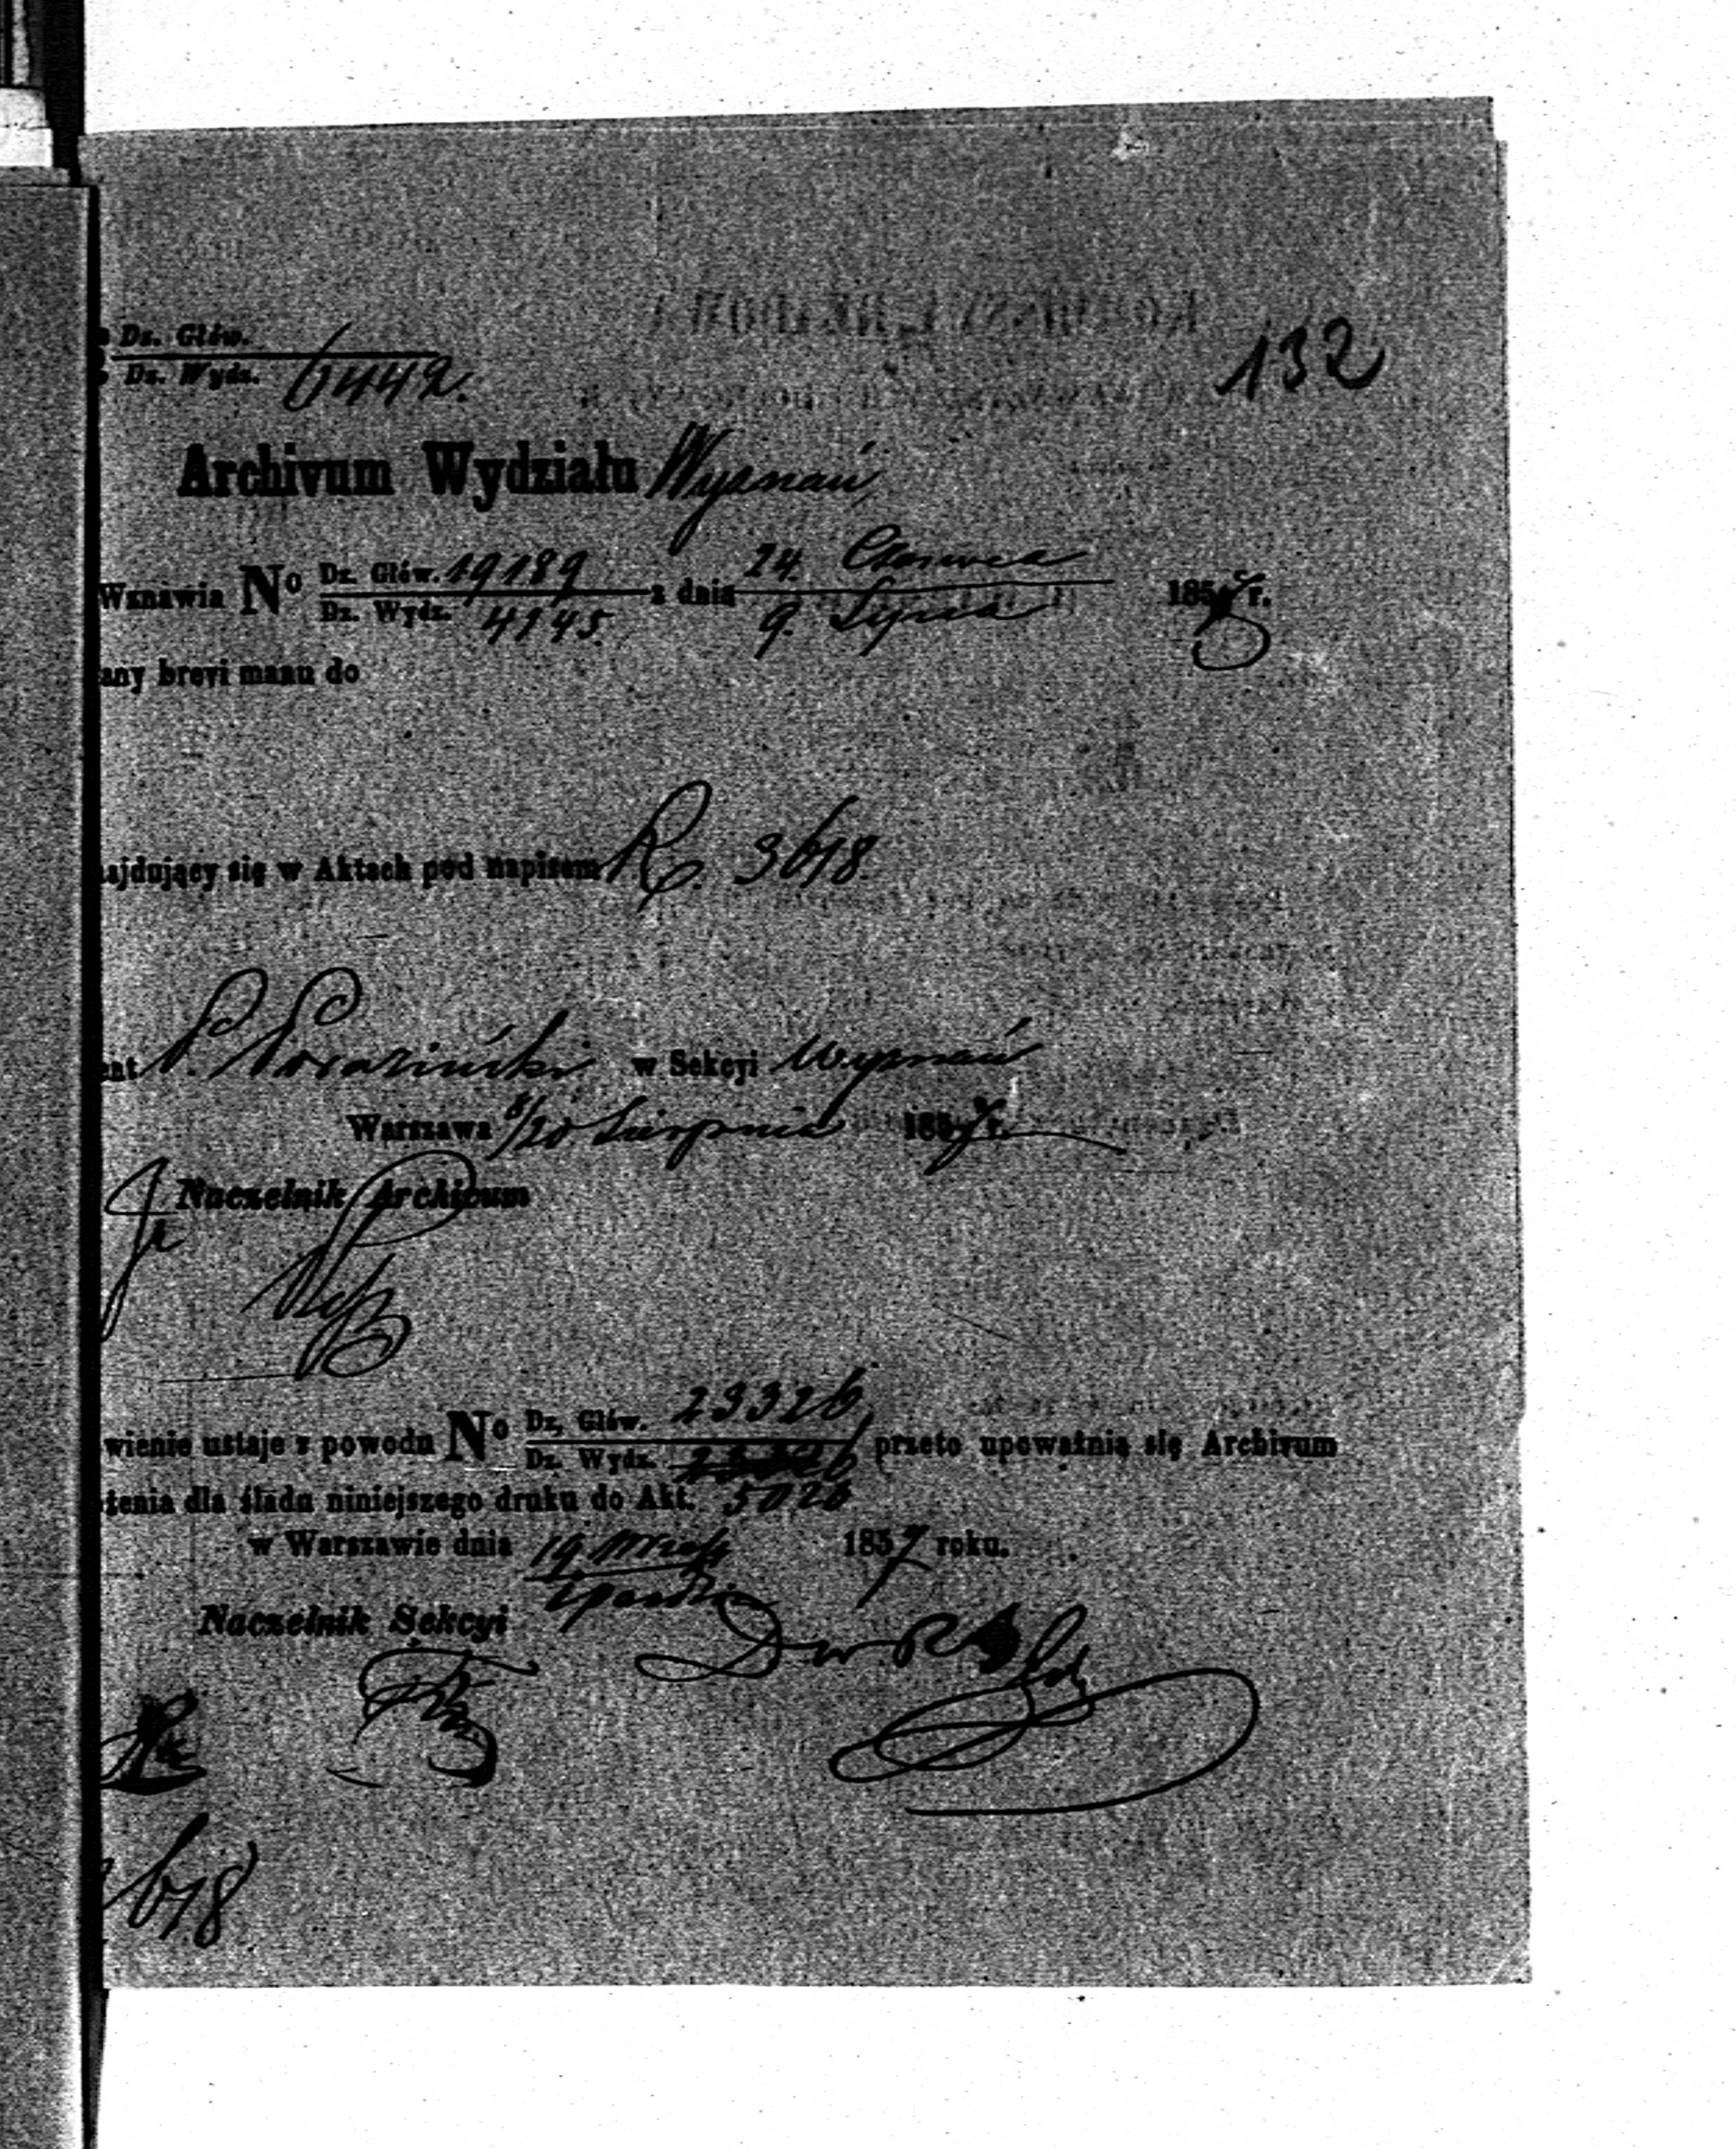 Dz. Głów.
Dz. Wydz. 6442.
132
Archivum Wydziału Wyznań
Wznawia No Dz. Głów. 19189 z dnia 24. Czerwca 185 r.
Dz. Wydz. 4145. 9. Lipca
any brevi manu do
ajdujący się w Aktach pod napisem R. 3618.
ent P. w Sekcyi Wyznań
Warszawa 8/20 Sierpnia 1857 r.
Naczelnik Archivum
wienie ustaje z powodu No Dz. Głów. 23326 przeto upoważnia się Archivum
Dz. Wydz.
żenia dla śladu niniejszego druku do Akt. 5026
w Warszawie dnia 19. 1857 roku.
Naczelnik Sekcyi
618